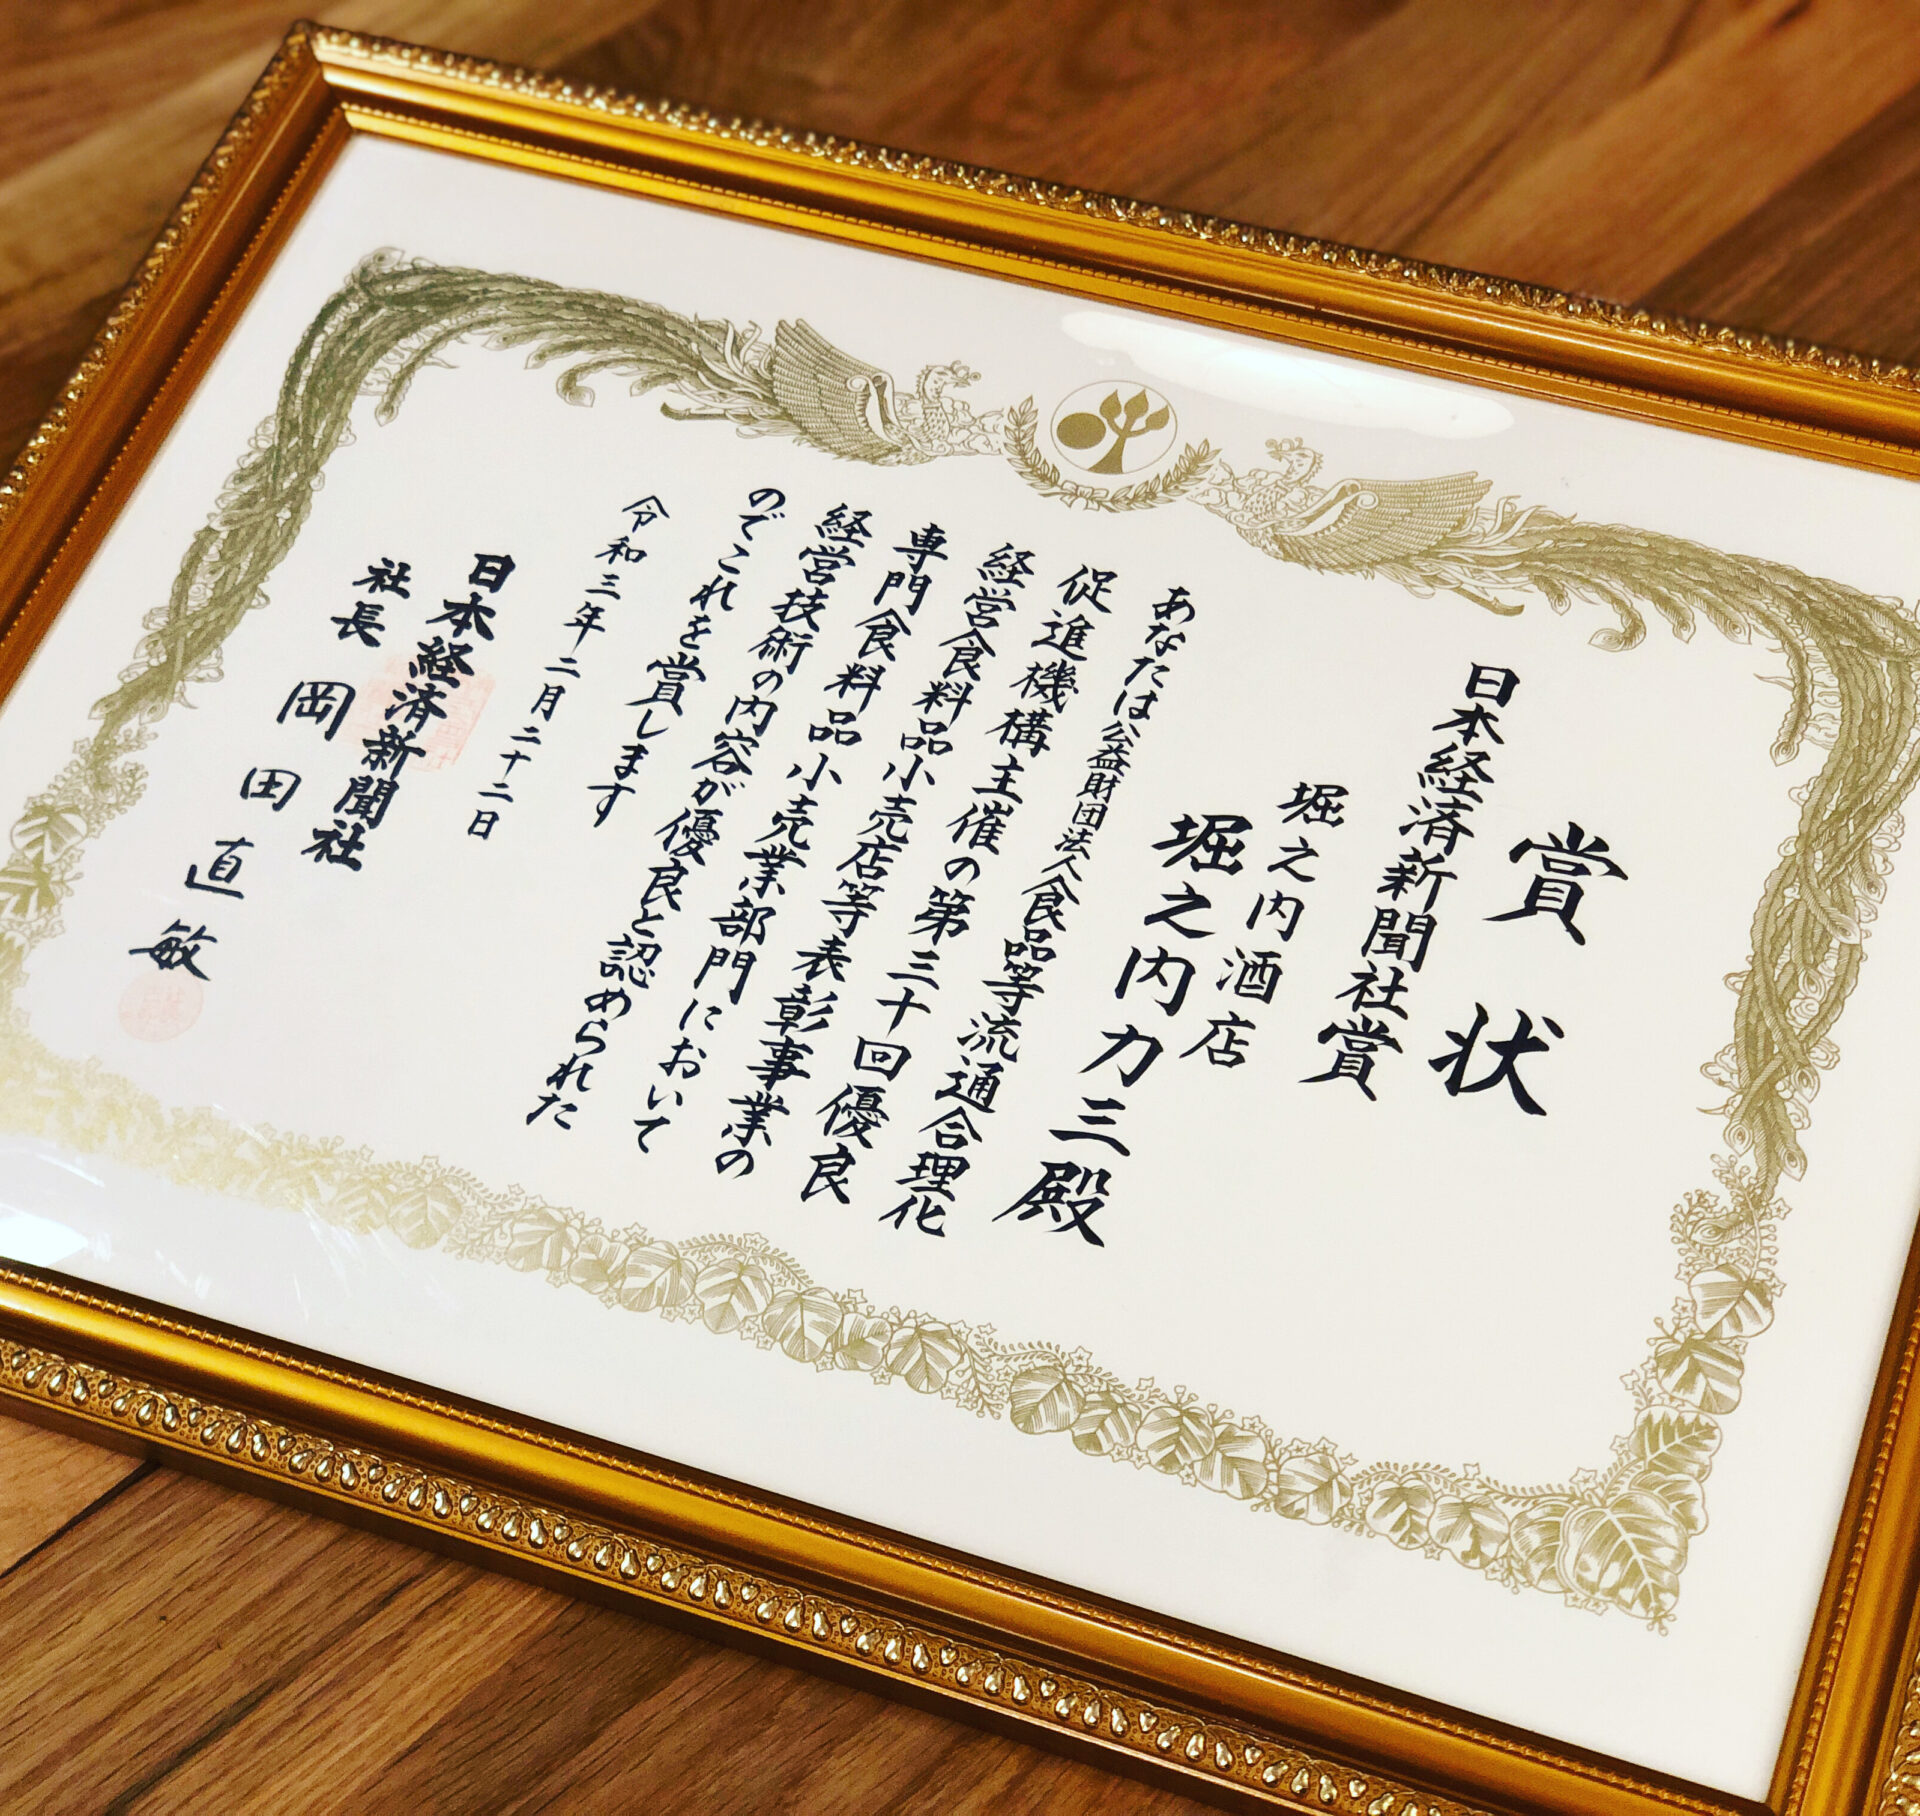 賞状
日本経済新聞社賞
堀之内酒店
堀之内力三殿
あなたは公益財団法人食品等流通合理化
促進機構主催の第三十回優良
経営食料品小売店等表彰事業の
専門食料品小売業部門において
経営技術の内容が優良と認められた
のでこれを賞します
令和三年二月二十二日
日本経済新聞社
社長 岡田直敏